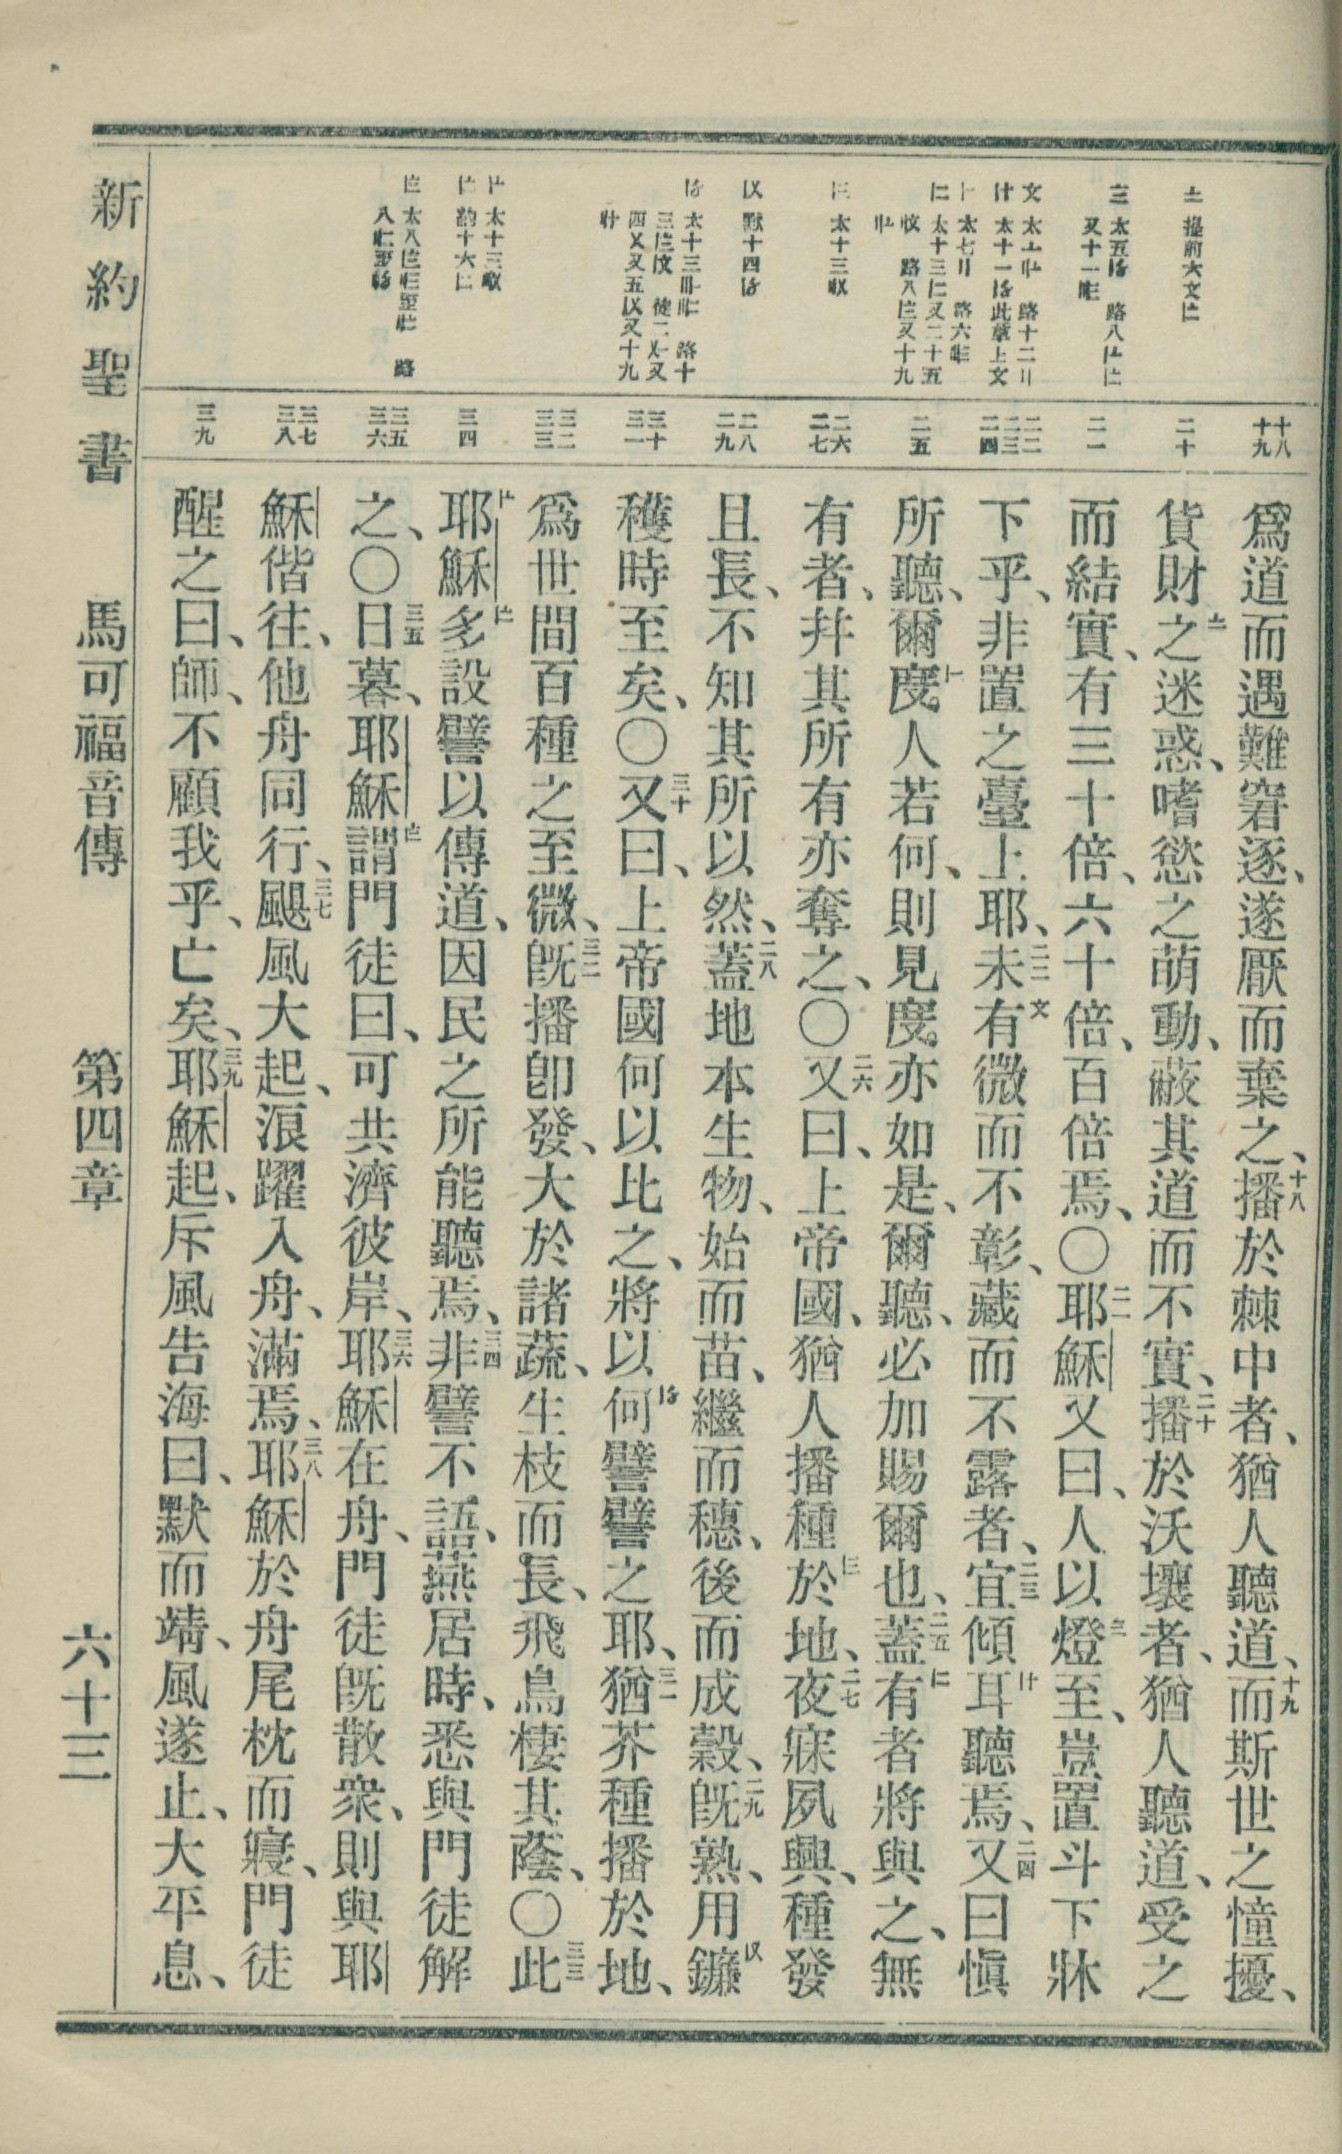 爲道而遇難窘逐、遂厭而棄之、十八播於棘中者、猶人聽道、十九而斯世之憧擾、
貨財之迷惑、嗜慾之萌動、蔽其道而不實、二十播於沃壤者、猶人聽道、受之
而結實、有三十倍、六十倍、百倍焉、〇二一耶穌又曰、人以燈至、豈置斗下牀
下乎、非置之臺上耶、二二未有微而不彰、藏而不露者、二三宜傾耳聽焉、二四又曰愼
所聽、爾度人若何、則見度亦如是、爾聽、必加賜爾也、二五蓋有者將與之、無
有者、幷其所有亦奪之、〇二六又曰、上帝國、猶人播種於地、二七夜寐夙興、種發
且長、不知其所以然、二八蓋地本生物、始而苗、繼而穗、後而成穀、二九旣熟、用鐮
穫時至矣、〇三十又曰、上帝國何以比之、將以何譬譬之耶、三一猶芥種播於地、
爲世間百種之至微、三二旣播卽發、大於諸蔬、生枝而長、飛鳥棲其蔭、〇三三此
耶穌多設譬以傳道、因民之所能聽焉、三四非譬不語、燕居時、悉與門徒解
之、〇三五日暮、耶穌謂門徒曰、可共濟彼岸、三六耶穌在舟、門徒旣散衆、則與耶
穌偕往、他舟同行、三七颶風大起、浪躍入舟、滿焉、三八耶穌於舟尾枕而寢、門徒
醒之曰、師、不顧我乎、亡矣、三九耶穌起、斥風告海曰、默而靖、風遂止、大平息、
十八
十九
二十
二一
二二
二三
二四
二五
二六
二七
二八
二九
三十
三一
三二
三三
三四
三五
三六
三七
三八
三九
新約聖書 馬可福音傳 第四章 六十三